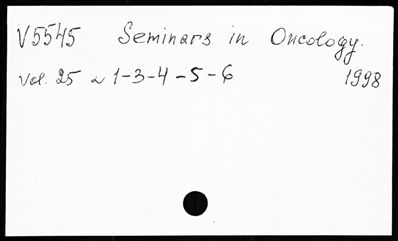 V5545 Seminars in Oncology.
Vol. 25 N 1-3-4-5-6 1998